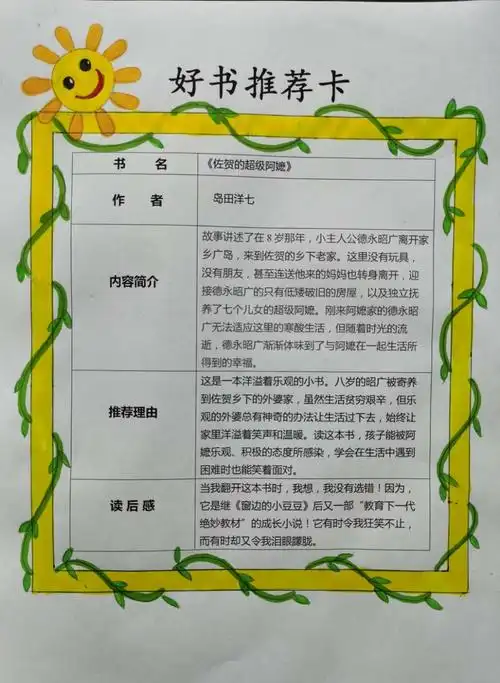 好书推荐卡
书 名 《佐贺的超级阿嬷》
作 者 岛田洋七
内容简介
故事讲述了在 8 岁那年，小主人公德永昭广离开家
乡广岛，来到佐贺的乡下老家。这里没有玩具，
没有朋友，甚至连送他来的妈妈也转身离开，迎
接德永昭广的只有低矮破旧的房屋，以及独立抚
养了七个儿女的超级阿嬷。刚来阿嬷家的德永昭
广无法适应这里的寒酸生活，但随着时光的流
逝，德永昭广渐渐体味到了与阿嬷在一起生活所
得到的幸福。
推荐理由
这是一本洋溢着乐观的小书。八岁的昭广被寄养
到佐贺乡下的外婆家，虽然生活贫穷艰辛，但乐
观的外婆总有神奇的办法让生活过下去，始终让
家里洋溢着笑声和温暖。读这本书，孩子能被阿
嬷乐观、积极的态度所感染，学会在生活中遇到
困难时也能笑着面对。
读 后 感
当我翻开这本书时，我想，我没有选错！因为，
它是继《窗边的小豆豆》后又一部“教育下一代
绝妙教材”的成长小说！它有时令我狂笑不止，
而有时却又令我泪眼朦胧。